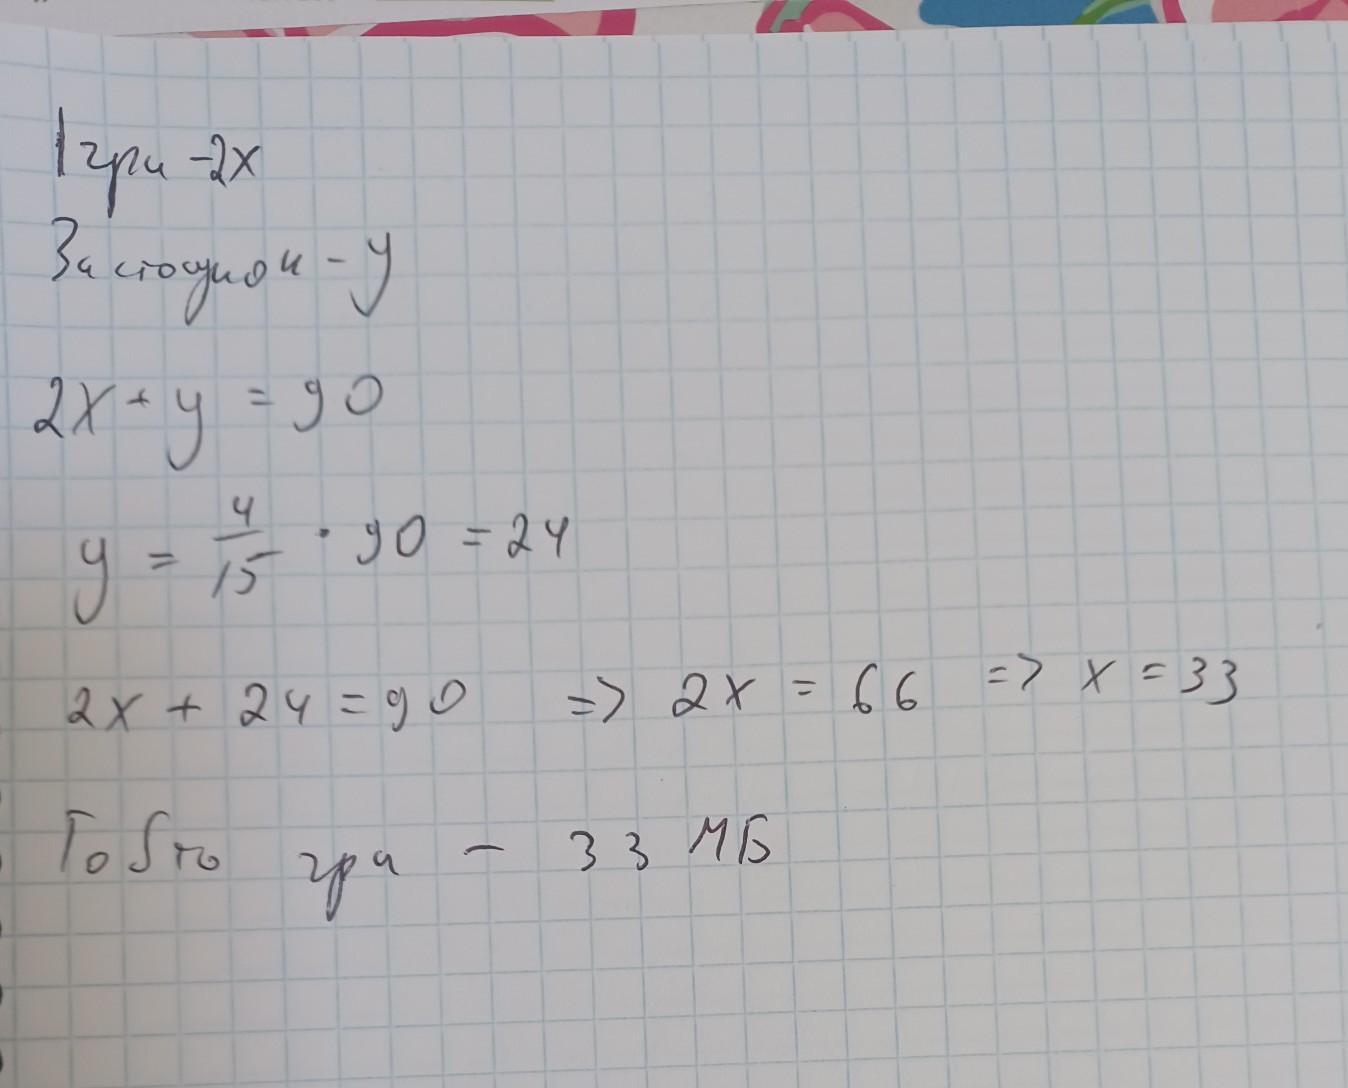 Ігри - 2x
Застосунок - y
2x + y = 90
y = 4/15 · 90 = 24
2x + 24 = 90 => 2x = 66 => x = 33
Тобто гра - 33 МБ